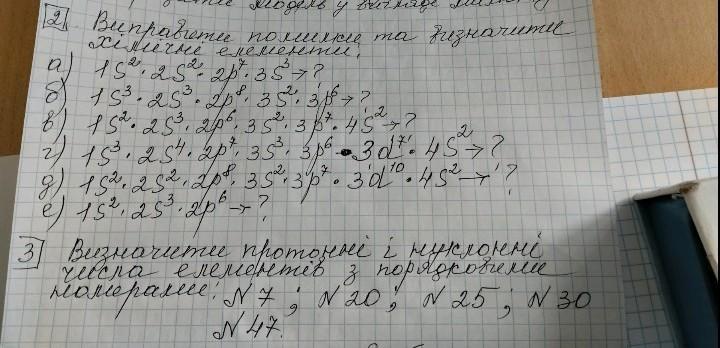 модель у вигляді
2 Виправити помилки та визначити
хімічні елементи:
а) 1s² · 2s² · 2p⁷ · 3s³ → ?
б) 1s³ · 2s³ · 2p⁸ · 3s² · 3p⁶ → ?
в) 1s² · 2s³ · 2p⁶ · 3s² · 3p⁷ · 4s² → ?
г) 1s³ · 2s⁴ · 2p⁷ · 3s³ · 3p⁶ · 3d⁷ · 4s² → ?
д) 1s² · 2s² · 2p⁸ · 3s² · 3p⁷ · 3d¹⁰ · 4s² → ?
е) 1s² · 2s³ · 2p⁶ → ?
3 Визначити протонні і нуклонні
числа елементів з порядковими
номерами: N7 ; N20 ; N25 ; N30
N47.